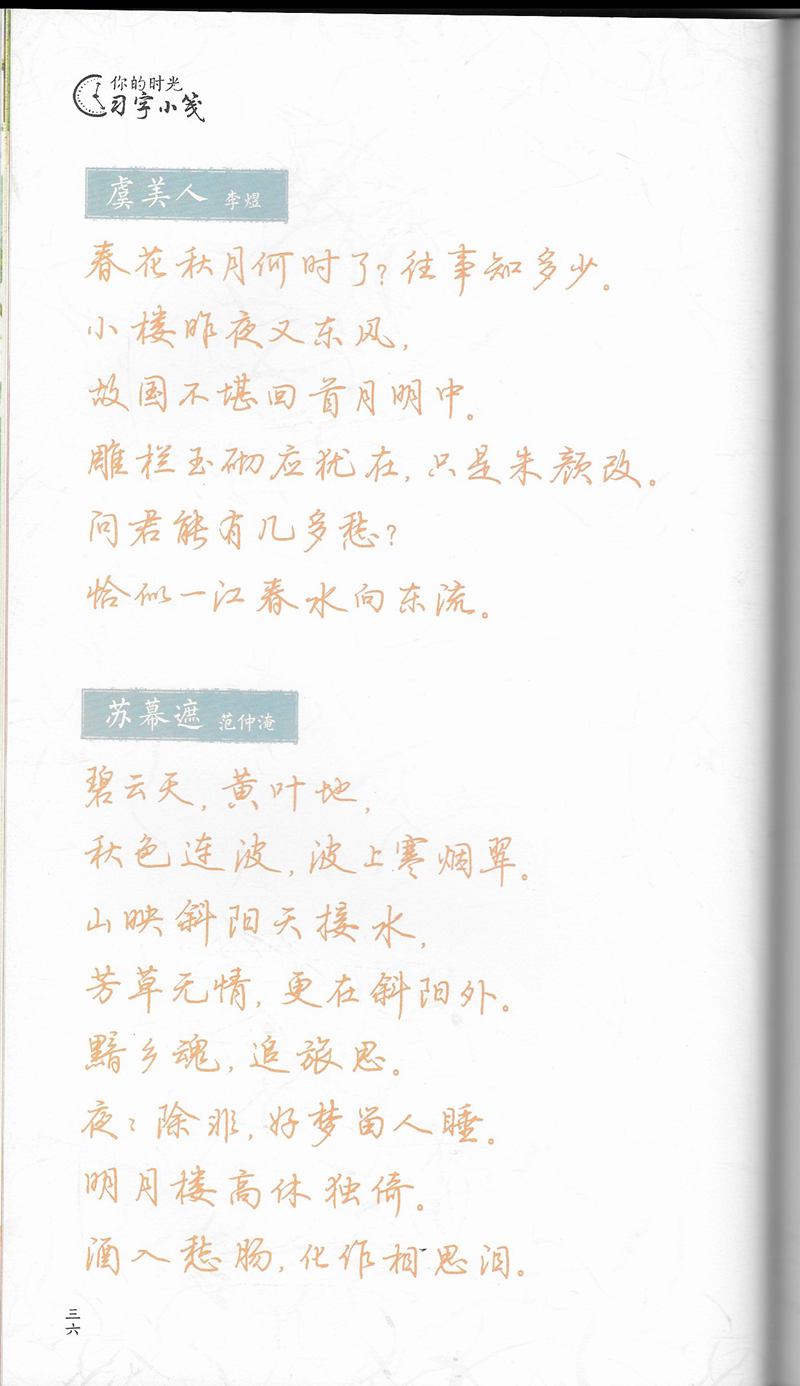 你的时光
习字小笺
虞美人 李煜
春花秋月何时了?往事知多少。
小楼昨夜又东风,
故国不堪回首月明中。
雕栏玉砌应犹在,只是朱颜改。
问君能有几多愁?
恰似一江春水向东流。
苏幕遮 范仲淹
碧云天,黄叶地,
秋色连波,波上寒烟翠。
山映斜阳天接水,
芳草无情,更在斜阳外。
黯乡魂,追旅思。
夜々除非,好梦留人睡。
明月楼高休独倚。
酒入愁肠,化作相思泪。
三六